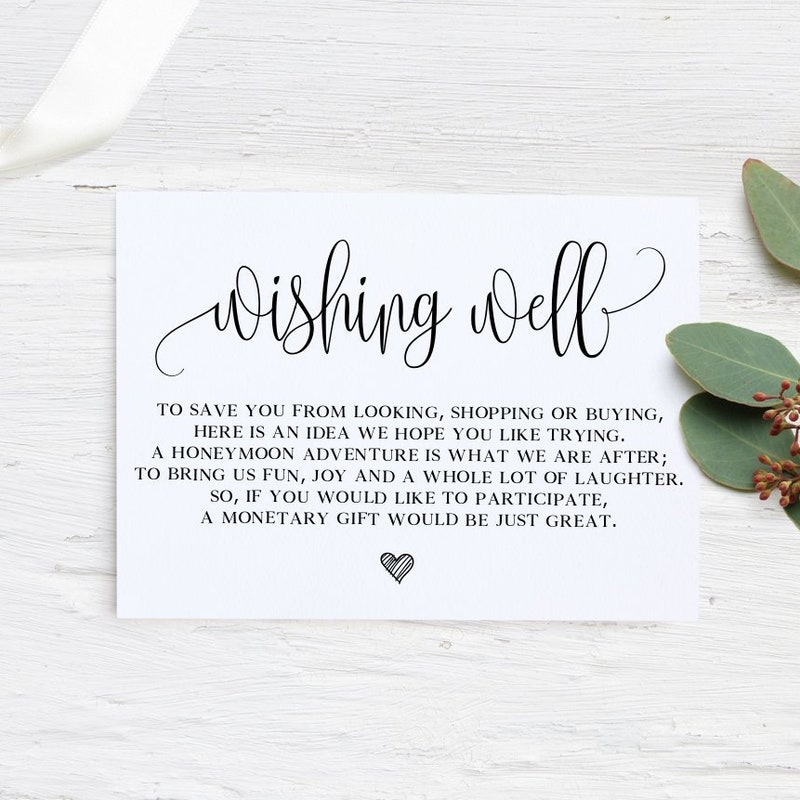 wishing well
TO SAVE YOU FROM LOOKING, SHOPPING OR BUYING,
HERE IS AN IDEA WE HOPE YOU LIKE TRYING.
A HONEYMOON ADVENTURE IS WHAT WE ARE AFTER;
TO BRING US FUN, JOY AND A WHOLE LOT OF LAUGHTER.
SO, IF YOU WOULD LIKE TO PARTICIPATE,
A MONETARY GIFT WOULD BE JUST GREAT.